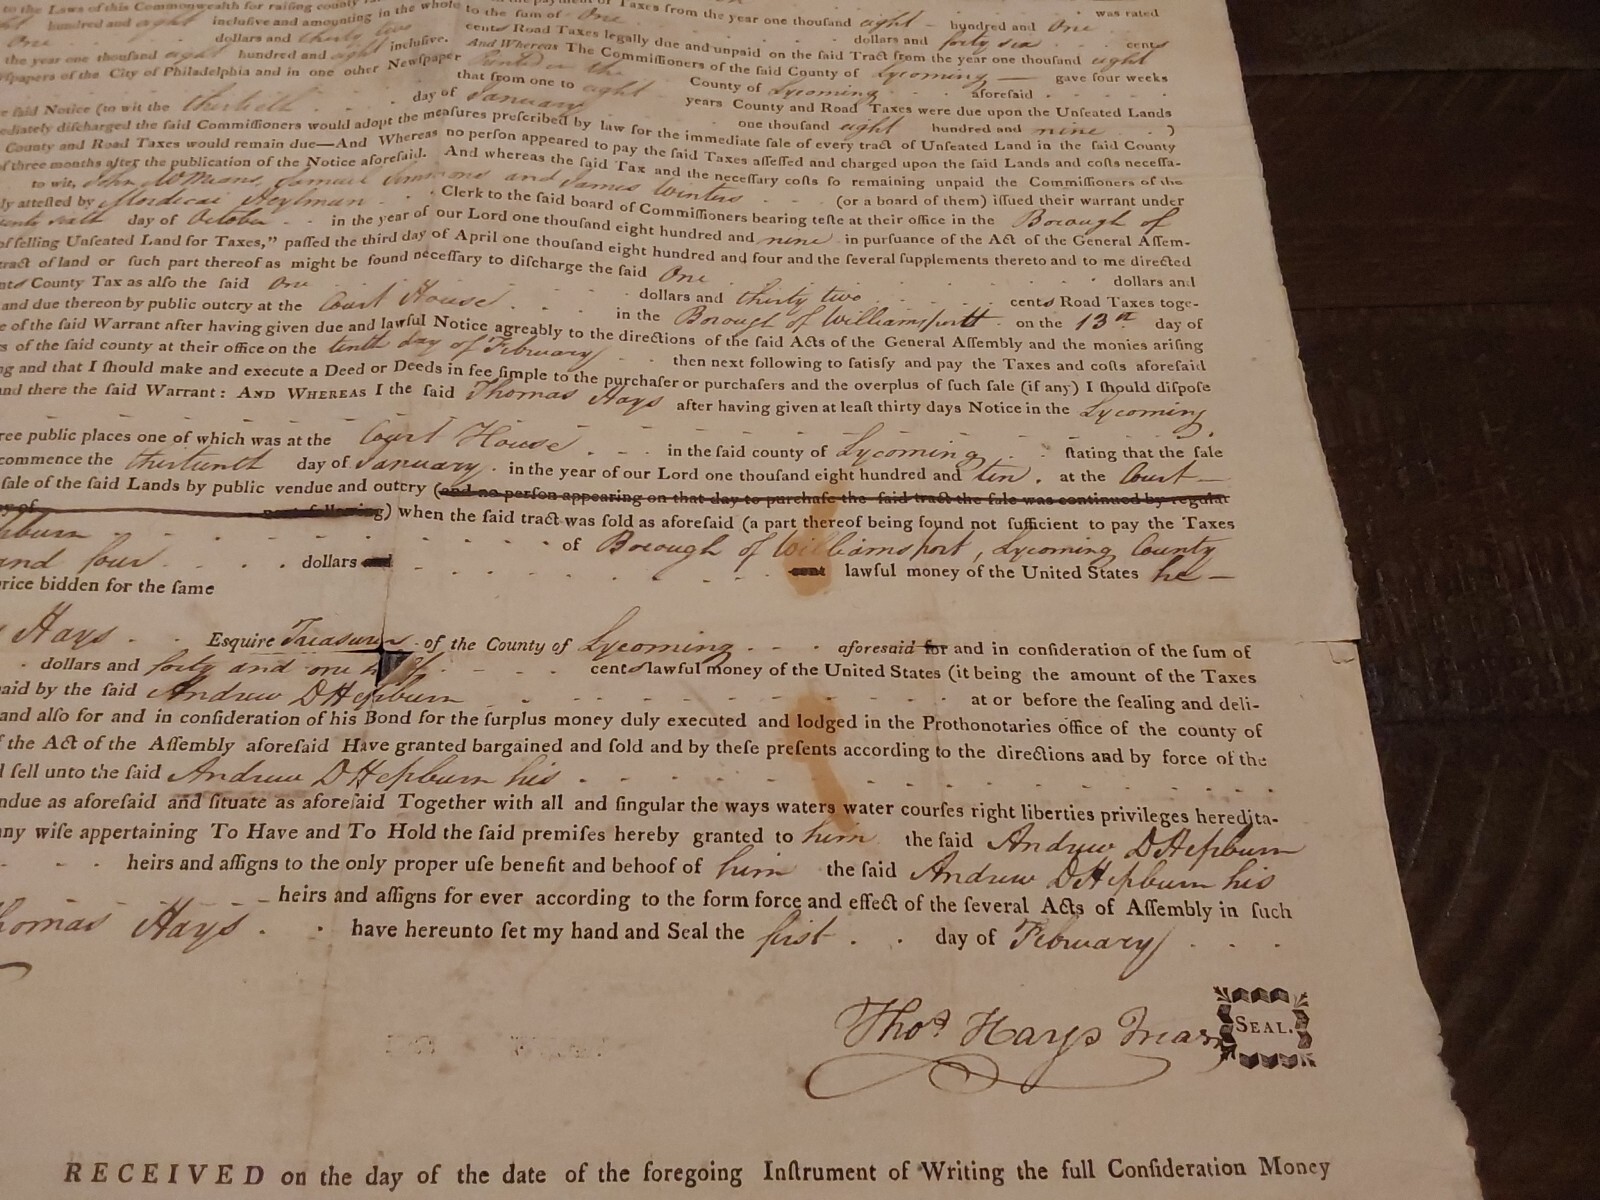 to the Laws of this Commonwealth for raising county Taxes from the year one thousand eight - hundred and One was rated
hundred and eight inclusive and amounting in the whole to the sum of One dollars and forty six cents
One dollars and thirty two cents Road Taxes legally due and unpaid on the said Tract from the year one thousand eight
the year one thousand eight hundred and eight inclusive. And Whereas The Commissioners of the said County of Lycoming gave four weeks
spapers of the City of Philadelphia and in one other Newspaper Printed in the County of Lycoming aforesaid
that from one to eight years County and Road Taxes were due upon the Unseated Lands
e said Notice (to wit the thirtieth day of January one thousand eight hundred and nine )
ediately discharged the said Commissioners would adopt the measures prescribed by law for the immediate sale of every tract of Unseated Land in the said County
County and Road Taxes would remain due—And Whereas no person appeared to pay the said Taxes assessed and charged upon the said Lands and costs necessa-
of three months after the publication of the Notice aforesaid. And whereas the said Tax and the necessary costs so remaining unpaid the Commissioners of the
to wit, John McMeans, Samuel Simmons and James Winters (or a board of them) issued their warrant under
ly attested by Mordecai Heylman Clerk to the said board of Commissioners bearing teste at their office in the Borough of
enty sixth day of October in the year of our Lord one thousand eight hundred and nine in pursuance of the Act of the General Assem-
of selling Unseated Land for Taxes," passed the third day of April one thousand eight hundred and four and the several supplements thereto and to me directed
tract of land or such part thereof as might be found necessary to discharge the said One dollars and
nts County Tax as also the said One dollars and thirty two cents Road Taxes toge-
and due thereon by public outcry at the Court House in the Borough of Williamsportt on the 13th day of
e of the said Warrant after having given due and lawful Notice agreably to the directions of the said Acts of the General Assembly and the monies arising
s of the said county at their office on the tenth day of February then next following to satisfy and pay the Taxes and costs aforesaid
ng and that I should make and execute a Deed or Deeds in fee simple to the purchaser or purchasers and the overplus of such sale (if any) I should dispose
and there the said Warrant: AND WHEREAS I the said Thomas Hays after having given at least thirty days Notice in the Lycoming
ree public places one of which was at the Court House in the said county of Lycoming stating that the sale
commence the thirteenth day of January in the year of our Lord one thousand eight hundred and ten. at the Court
sale of the said Lands by public vendue and outcry (and no person appearing on that day to purchase the said tract the sale was continued by regular
y of next following) when the said tract was sold as aforesaid (a part thereof being found not sufficient to pay the Taxes
pburn of Borough of Williamsport, Lycoming County
and four dollars and cent lawful money of the United States he
rice bidden for the same
Hays Esquire Treasurer of the County of Lycoming aforesaid for and in consideration of the sum of
dollars and forty and one half cents lawful money of the United States (it being the amount of the Taxes
paid by the said Andrew D Hepburn at or before the sealing and deli-
and also for and in consideration of his Bond for the surplus money duly executed and lodged in the Prothonotaries office of the county of
f the Act of the Assembly aforesaid Have granted bargained and sold and by these presents according to the directions and by force of the
l sell unto the said Andrew D Hepburn his
ndue as aforesaid and situate as aforesaid Together with all and singular the ways waters water courses right liberties privileges heredita-
any wise appertaining To Have and To Hold the said premises hereby granted to him the said Andrew D Hepburn
heirs and assigns to the only proper use benefit and behoof of him the said Andrew D Hepburn his
heirs and assigns for ever according to the form force and effect of the several Acts of Assembly in such
homas Hays have hereunto set my hand and Seal the first day of February
Thos Hays Treasr SEAL.
RECEIVED on the day of the date of the foregoing Instrument of Writing the full Consideration Money